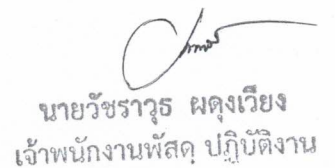 นายวัชราวุธ ผดุงเวียง
เจ้าพนักงานพัสดุ ปฏิบัติงาน